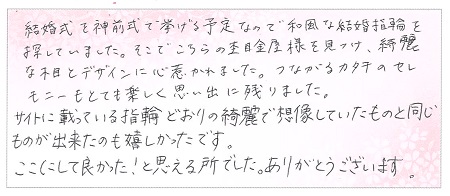 結婚式を神前式で挙げる予定なので和風な結婚指輪を
探していました。そこでこちらの杢目金屋様を見つけ、綺麗
な木目とデザインに心惹かれました。つながるカタチのセレ
モニーもとても楽しく思い出に残りました。
サイトに載っている指輪どおりの綺麗で想像していたものと同じ
ものが出来たのも嬉しかったです。
ここにして良かった!と思える所でした。ありがとうございます。